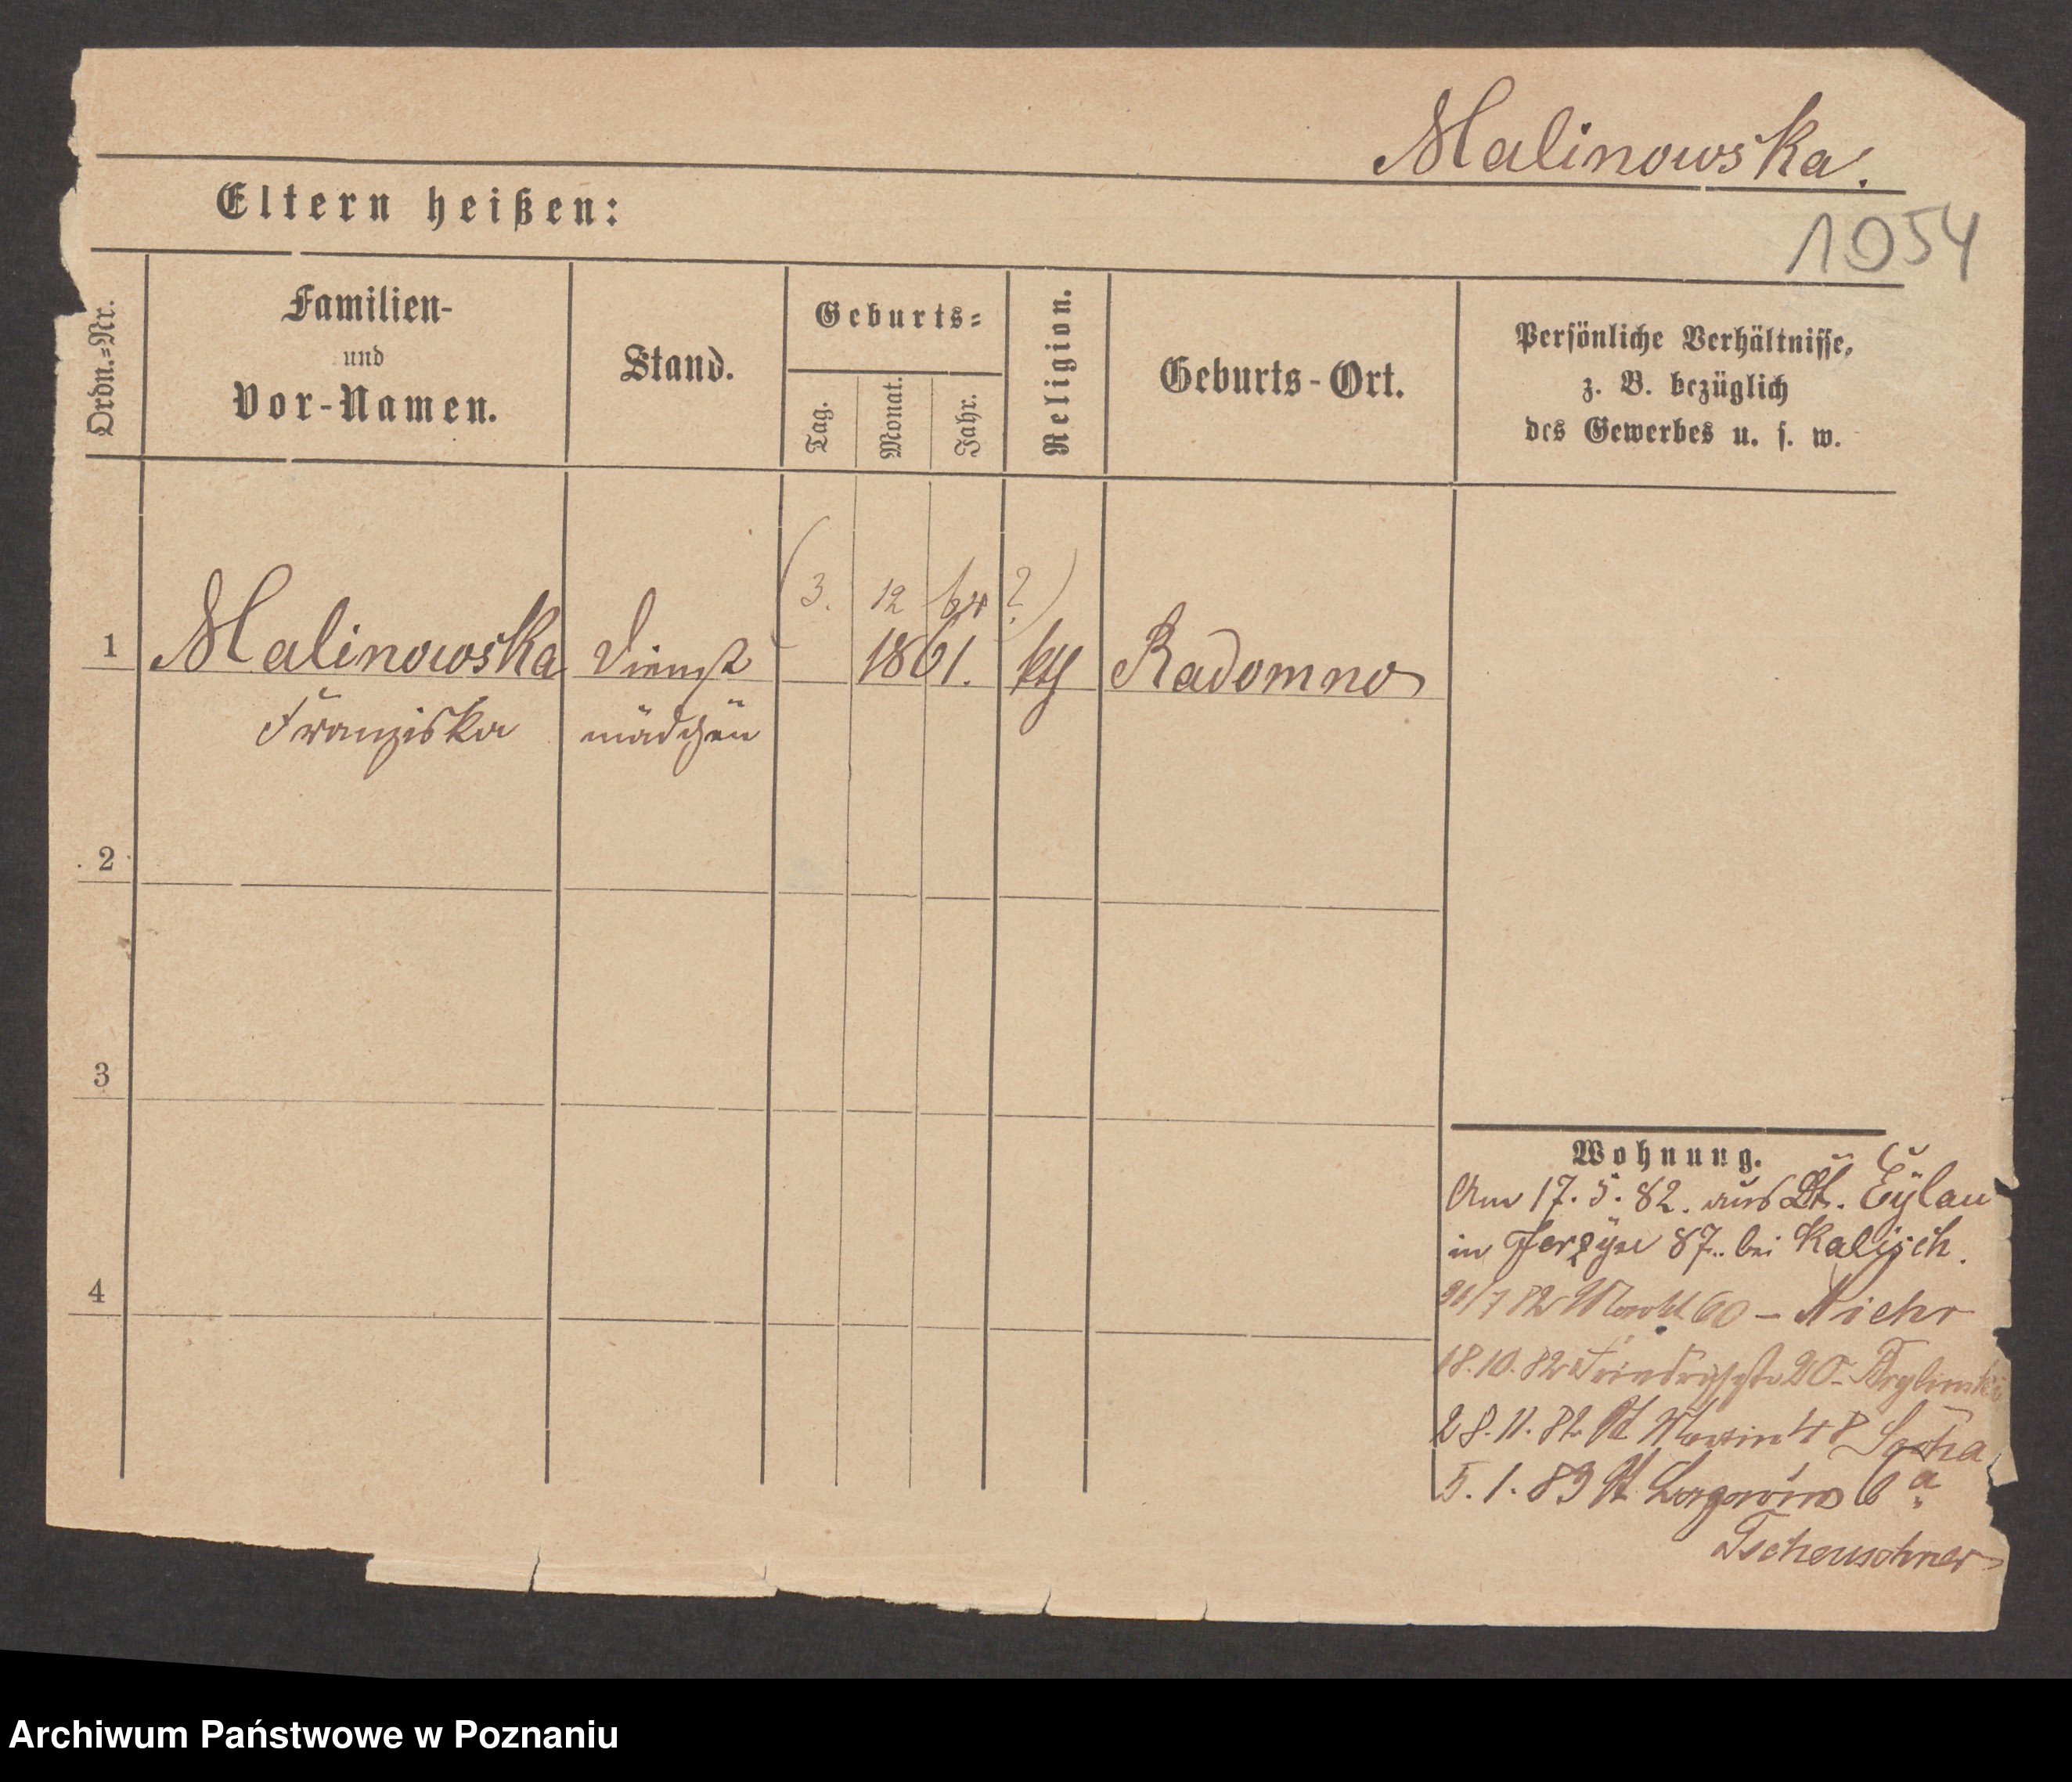 Malinowska.
1054
Eltern heißen:
Ordn.=Nr.
Familien-
und
Vor-Namen.
Stand.
Geburts=
Tag.
Monat.
Jahr.
Religion.
Geburts-Ort.
Persönliche Verhältnisse,
z. B. bezüglich
des Gewerbes u. s. w.
(3. 12 64 ?)
1 Malinowska Dienst 1861. kth Radomno
Franziska mädchen
2
3
4
Wohnung.
Am 17. 5. 82. aus Dt. Eylau
in Jerzyce 87. bei Kalisch.
/7 82 60 –
18.10.82 Friedrichstr 20–
28.11.82 St Martin 48 Socha
5.1.83 St 6a
Tscheuschner
Archiwum Państwowe w Poznaniu